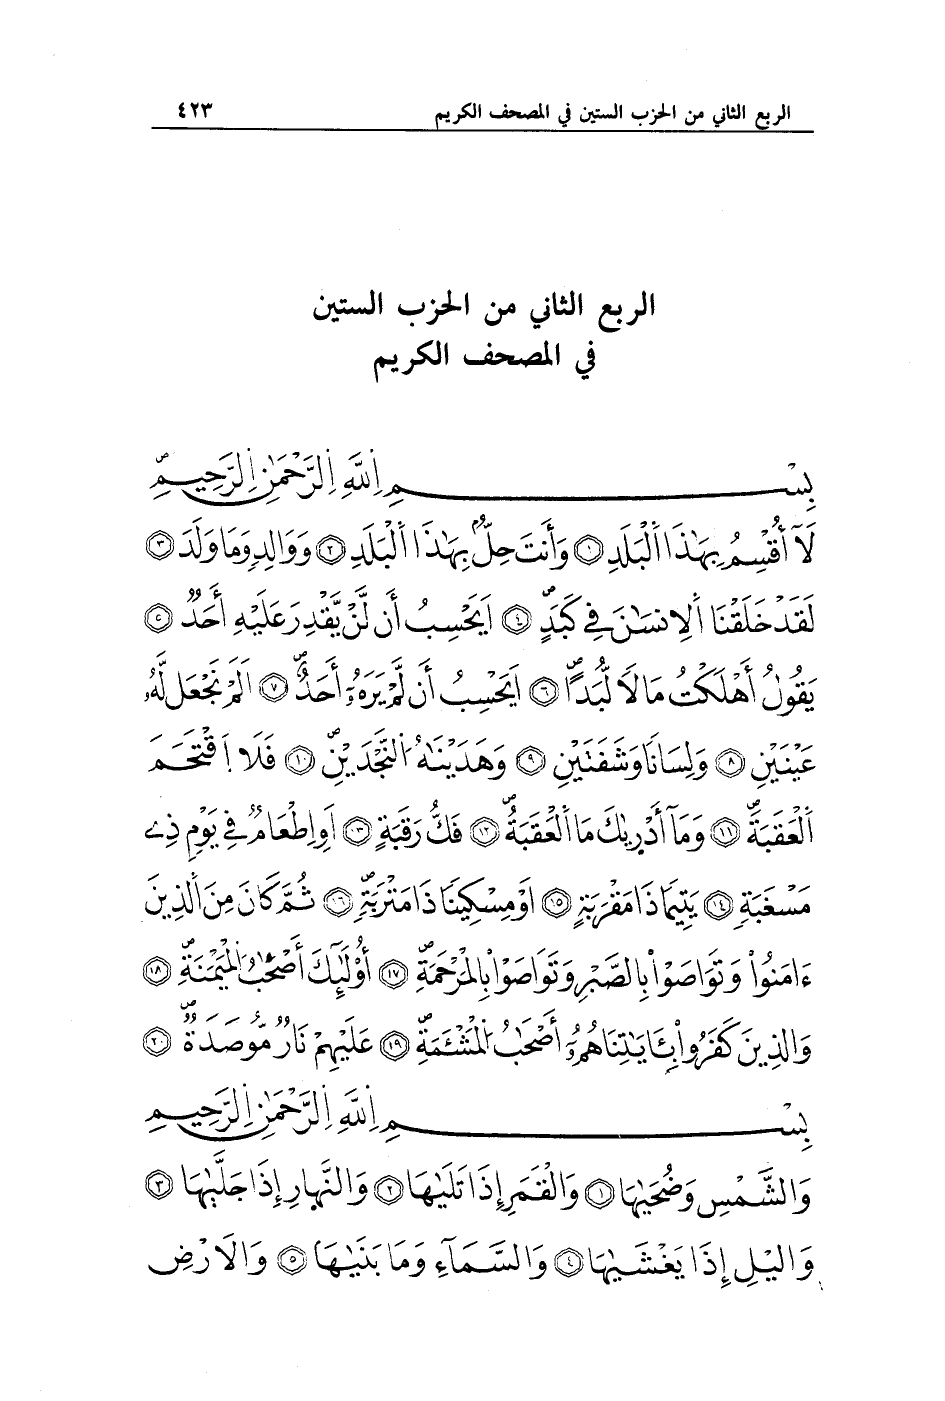 الربع الثاني من الحزب الستين في المصحف الكريم ٤٢٣
الربع الثاني من الحزب الستين
في المصحف الكريم
بِسْمِ اِللَّهِ اِلرَّحْمَٰنِ اِلرَّحِيمِ
لَآ أُقْسِمُ بِهَٰذَا اَلْبَلَدِ ١ وَأَنتَ حِلُّۢ بِهَٰذَا اَلْبَلَدِ ٢ وَوَالِدٖ وَمَا وَلَدَ ٣
لَقَدْ خَلَقْنَا اَلِانسَٰنَ فِي كَبَدٍ ٤ اَيَحْسِبُ أَن لَّنْ يَّقْدِرَ عَلَيْهِ أَحَدٞ ٥
يَقُولُ أَهْلَكْتُ مَالًا لُّبَدًا ٦ اَيَحْسِبُ أَن لَّمْ يَرَهُۥ أَحَدٌ ٧ اَلَمْ نَجْعَل لَّهُۥ
عَيْنَيْنِ ٨ وَلِسَانًا وَشَفَتَيْنِ ٩ وَهَدَيْنَٰهُ اُلنَّجْدَيْنِ ١٠ فَلَا اَ۪قْتَحَمَ
اَلْعَقَبَةَ ١١ وَمَآ أَدْر۪يٰكَ مَا اَلْعَقَبَةُ ١٢ فَكُّ رَقَبَةٍ ١٣ اَوِ اِطْعَٰمٞ فِي يَوْمٖ ذِے
مَسْغَبَةٖ ١٤ يَتِيمًا ذَا مَقْرَبَةٍ ١٥ اَوْ مِسْكِينًا ذَا مَتْرَبَةٖ ١٦ ثُمَّ كَانَ مِنَ اَلَّذِينَ
ءَامَنُواْ وَتَوَاصَوْاْ بِالصَّبْرِ وَتَوَاصَوْاْ بِالْمَرْحَمَةِ ١٧ أُوْلَٰٓئِكَ أَصْحَٰبُ اُلْمَيْمَنَةِ ١٨
وَالذِينَ كَفَرُواْ بِـَٔايَٰتِنَا هُمُۥٓ أَصْحَٰبُ اُلْمَشْـَٔمَةِ ١٩ عَلَيْهِمْ نَارٞ مُّوصَدَةٞ ٢٠
بِسْمِ اِللَّهِ اِلرَّحْمَٰنِ اِلرَّحِيمِ
وَالشَّمْسِ وَضُحَيٰهَا ١ وَالْقَمَرِ إِذَا تَلَيٰهَا ٢ وَالنَّهَارِ إِذَا جَلَّيٰهَا ٣
وَاليْلِ إِذَا يَغْشَيٰهَا ٤ وَالسَّمَآءِ وَمَا بَنَيٰهَا ٥ وَالَارْضِ